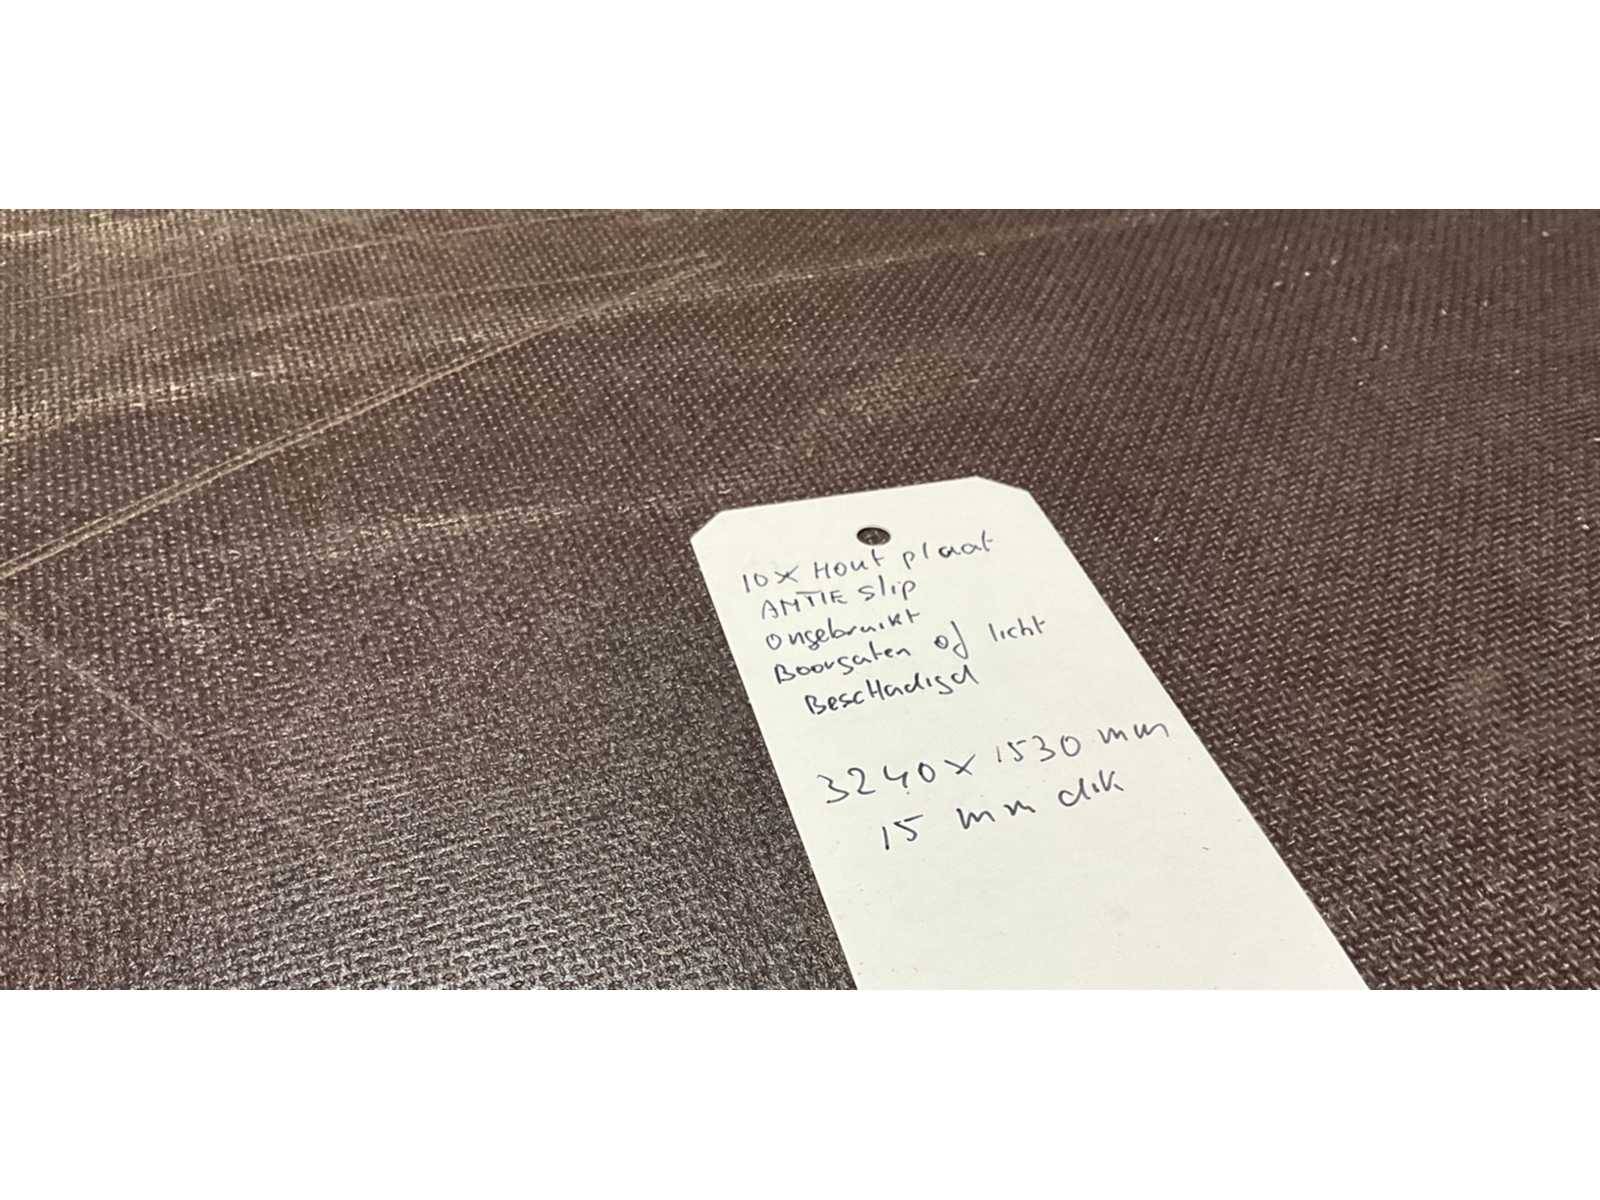 10x Hout plaat
ANTIE slip
ongebruikt
Boorgaten of licht
BescHadigd
3240 x 1530 mm
15 mm dik